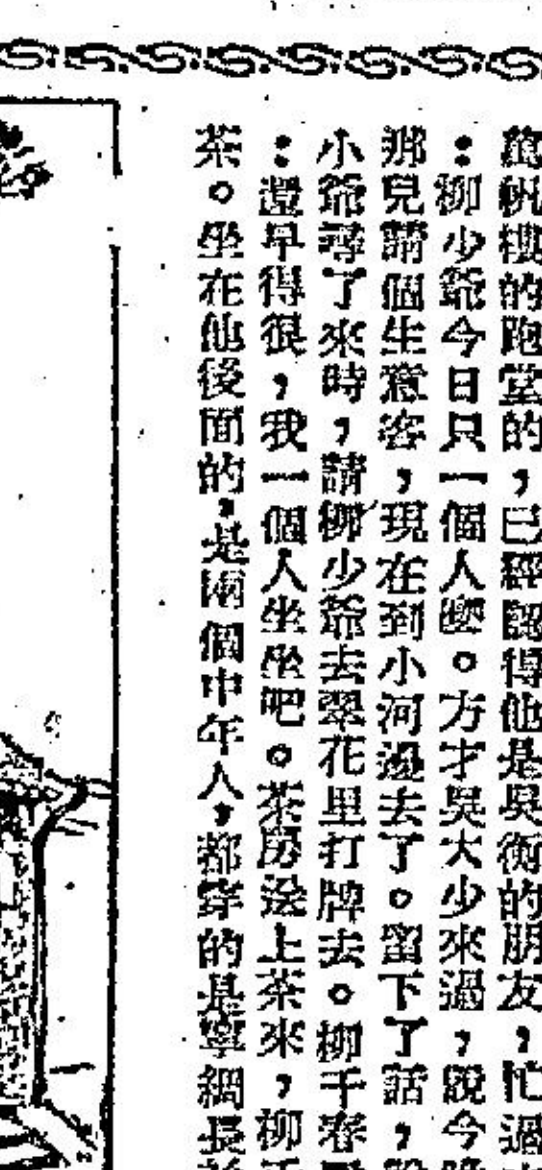 萬帆樓的跑堂的，已經認得他是吳衡的朋友，忙過
：柳少爺今日只一個人麼。方才吳大少來過，說今
那兒請個生意客，現在到小河邊去了。留下了話，
小爺尋了來時，請柳少爺去翠花里打牌去。柳千春
：還早得很，我一個人坐坐吧。茶房送上茶來，柳
茶。坐在他後面的，是兩個中年人，都穿的是寧綢長